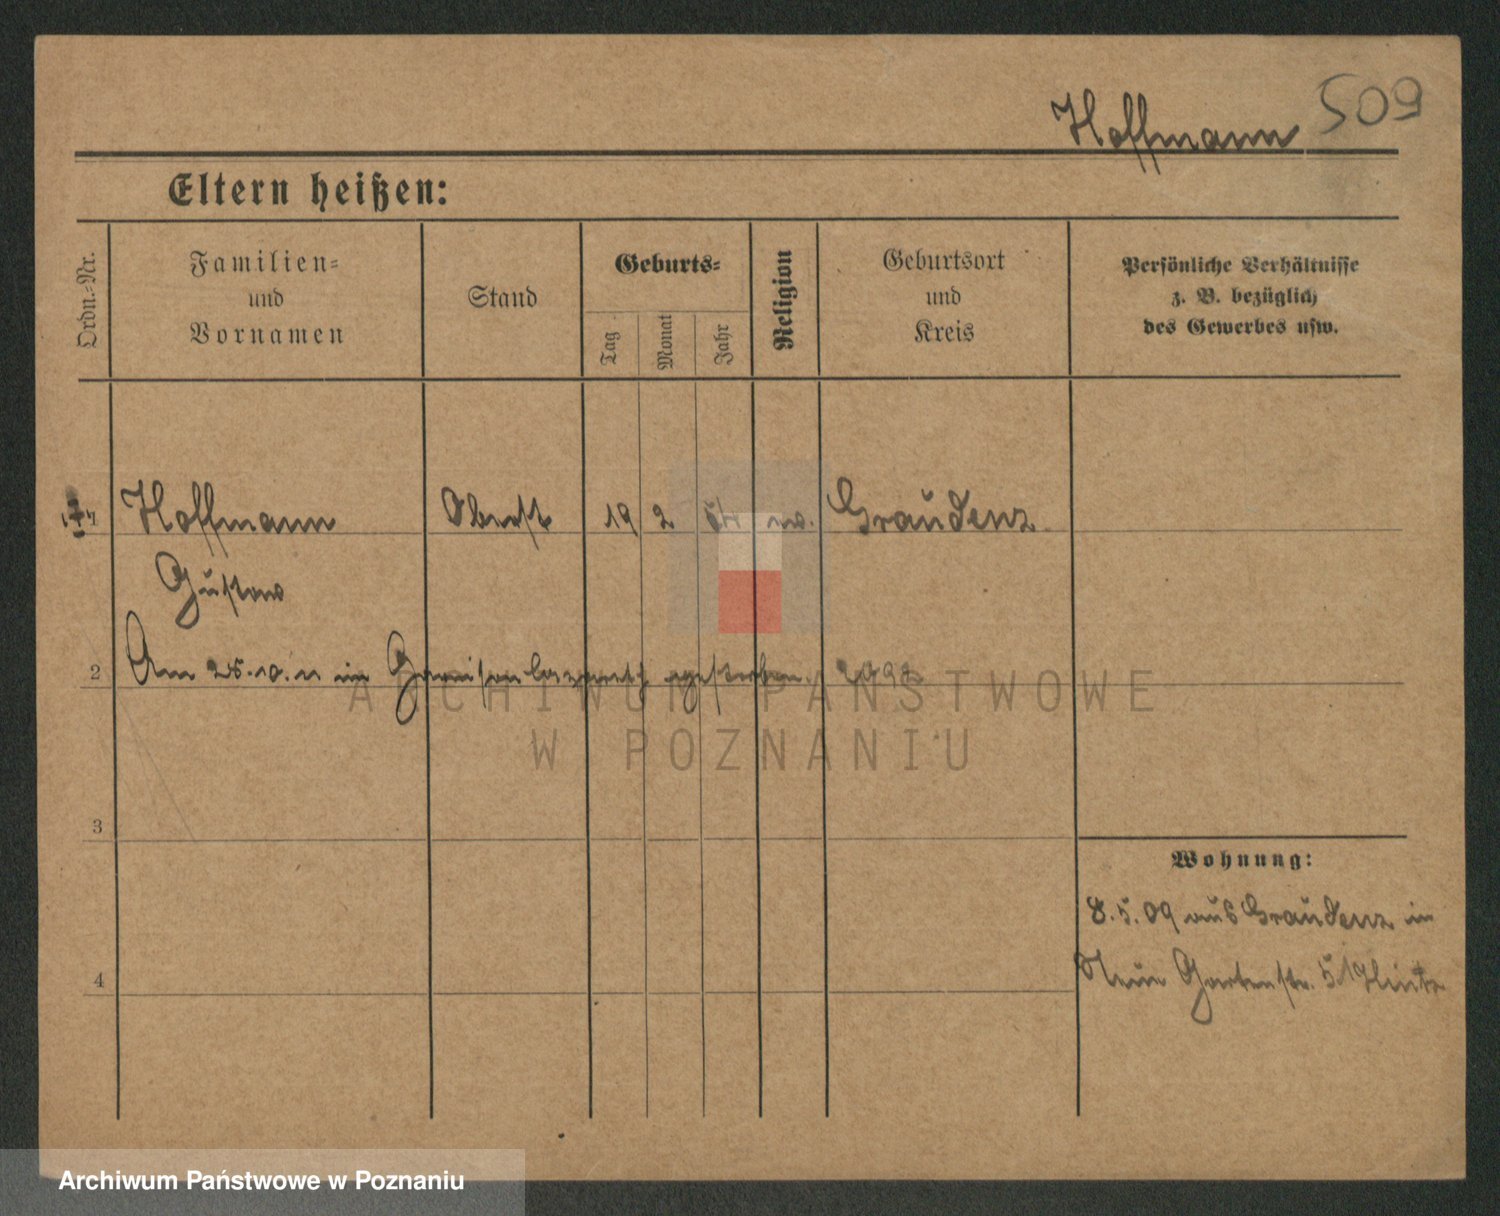 Hoffmann 509
Eltern heißen:
Ordn.-Nr.
Familien-
und
Vornamen
Stand
Geburts-
Tag
Monat
Jahr
Religion
Geburtsort
und
Kreis
Persönliche Verhältnisse
z. B. bezüglich
des Gewerbes usw.
Hoffmann Oberst 19 2 ev. Graudenz
Gustav
2 Am 25.10.11 im Garnisonlazareth gestorben.
ARCHIWUM PAŃSTWOWE
W POZNANIU
3
Wohnung:
8.5.09 aus Graudenz in
4 Neue Gartenstr. 5
Archiwum Państwowe w Poznaniu